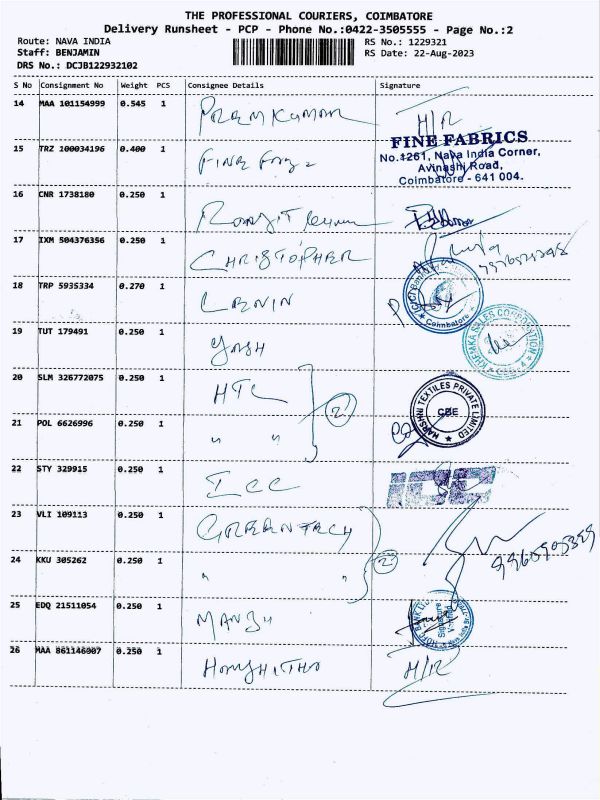 THE PROFESSIONAL COURIERS, COIMBATORE
Delivery Runsheet - PCP - Phone No.:0422-3505555 - Page No.:2
Route: NAVA INDIA
Staff: BENJAMIN
DRS No.: DCJB122932102
RS No.: 1229321
RS Date: 22-Aug-2023
S No Consignment No Weight PCS Consignee Details Signature
14 MAA 101154999 0.545 1 PREM KUMAR H/R
15 TRZ 100034196 0.400 1 FINE
FINE FABRICS
No.1261, Nava India Corner,
Avinashi Road,
Coimbatore - 641 004.
16 CNR 1738180 0.250 1
17 IXM 504376356 0.250 1 CHRISTOPHER
18 TRP 5935334 0.270 1 LENIN
Coimbatore
19 TUT 179491 0.250 1 YASH
SALES CORPORATION
20 SLM 326772075 0.250 1 HTL
2
21 POL 6626996 0.250 1 " "
HARSHNI TEXTILES PRIVATE LIMITED
CBE
22 STY 329915 0.250 1 ICC
23 VLI 109113 0.250 1 GREENTECH
24 KKU 305262 0.250 1 " "
2
25 EDQ 21511054 0.250 1 MANJU
26 MAA 861146907 0.250 1 H/R